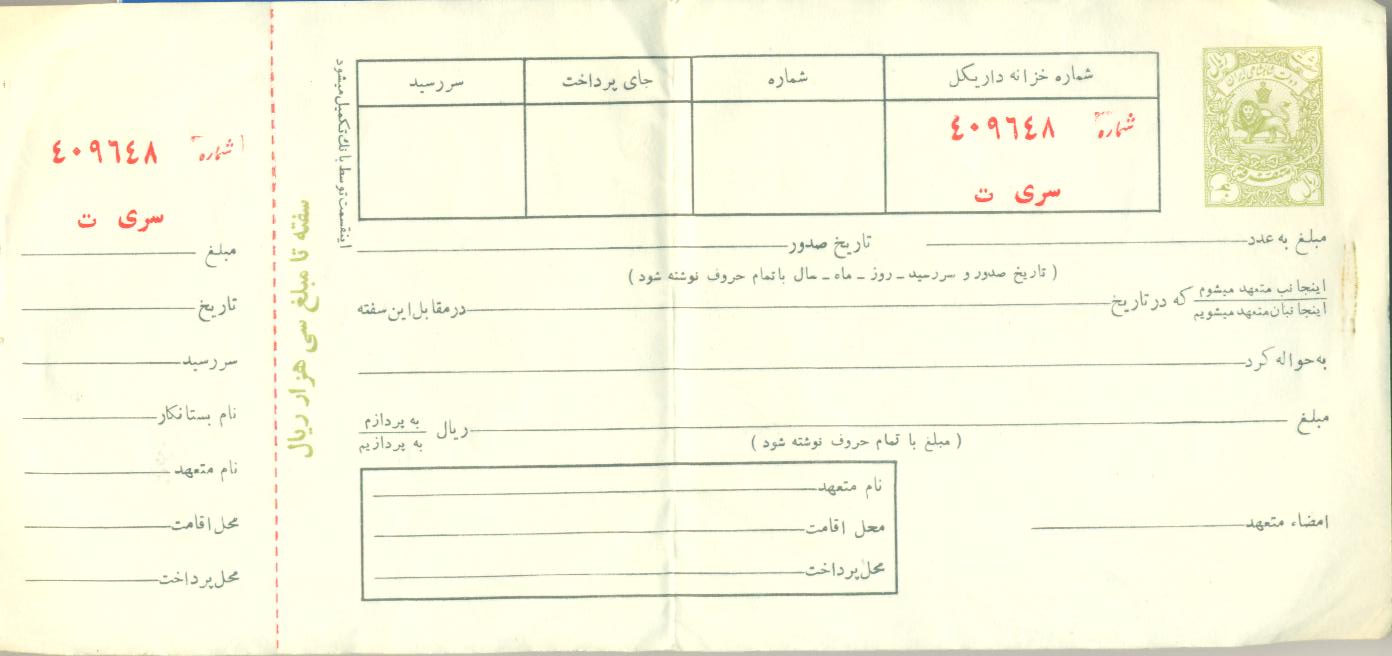 شماره خزانه داریکل
شماره
جای پرداخت
سررسید
شماره ٤٠٩٦٤٨
سری ت
اینقسمت توسط بانک تکمیل میشود
سفته تا مبلغ سی هزار ریال
مبلغ به عدد
تاریخ صدور
( تاریخ صدور و سررسید ـ روز ـ ماه ـ سال باتمام حروف نوشته شود )
اینجانب متعهد میشوم
اینجانبان متعهد میشویم
که در تاریخ
در مقابل این سفته
به حواله کرد
مبلغ
ریال
به پردازم
به پردازیم
( مبلغ با تمام حروف نوشته شود )
نام متعهد
محل اقامت
محل پرداخت
امضاء متعهد
شماره ٤٠٩٦٤٨
سری ت
مبلغ
تاریخ
سررسید
نام بستانکار
نام متعهد
محل اقامت
محل پرداخت